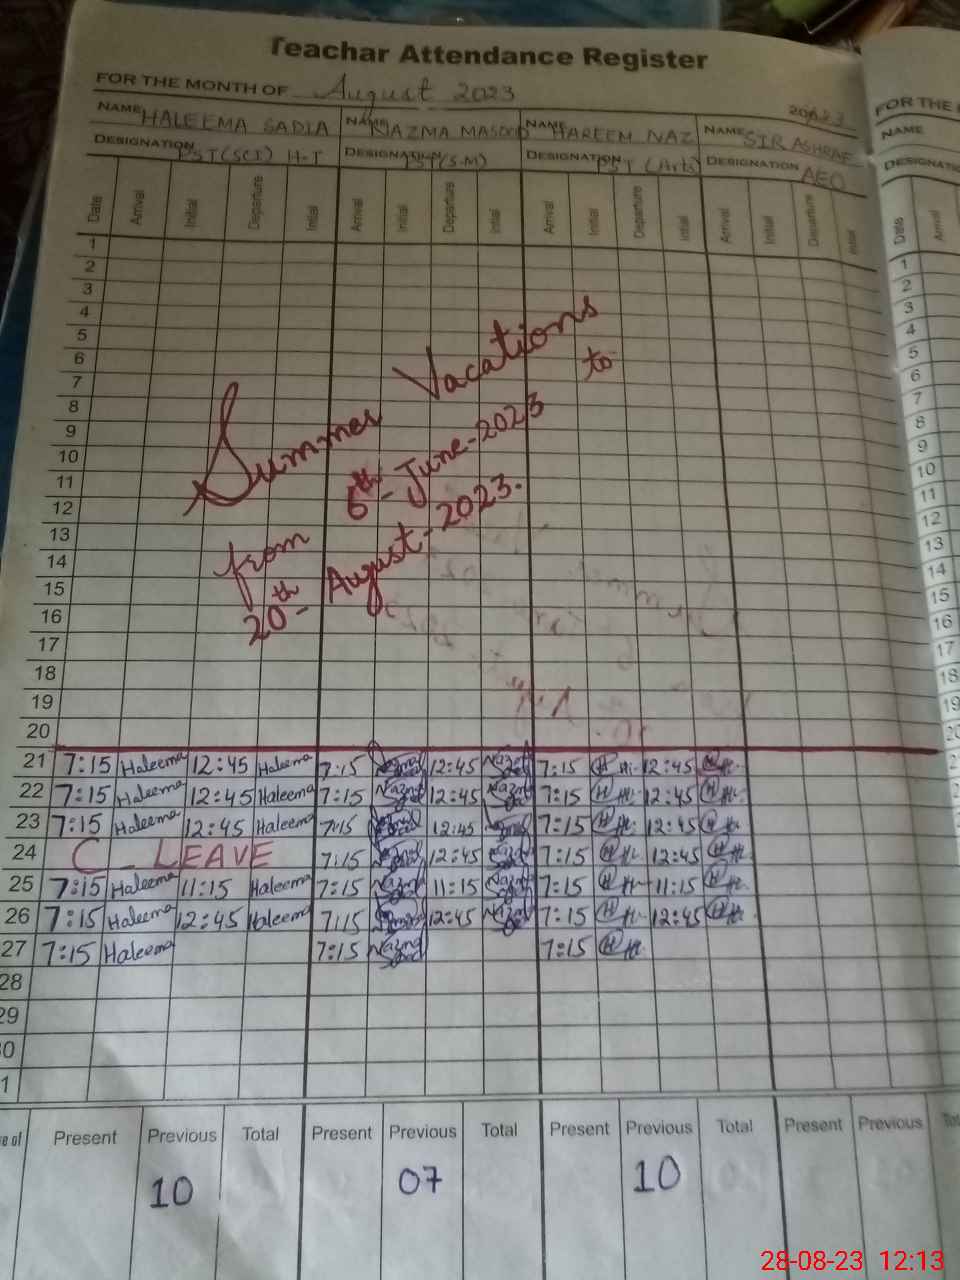 Teachar Attendance Register
FOR THE MONTH OF August 2023
NAME HALEEMA SADIA NAME NAZMA MASOOD NAME HAREEM NAZ NAME SIR ASHRAF
DESIGNATION PST(SCI) H-T DESIGNATION PST(S.M) DESIGNATION PST (Arts) DESIGNATION AEO
Date Arrival Initial Departure Initial Arrival Initial Departure Initial Arrival Initial Departure Initial Arrival Initial Departure Initial
1
2
3
4
5
6
7
8
9
10
11
12
13
14
15
16
17
18
19
20
Summer Vacations
from 6th-June-2023 to
20th-August-2023.
21 7:15 Haleema 12:45 Haleema 7:15 12:45 7:15 12:45
22 7:15 Haleema 12:45 Haleema 7:15 12:45 7:15 12:45
23 7:15 Haleema 12:45 Haleema 7:15 12:45 7:15 12:45
24 C-LEAVE 7:15 12:45 7:15 12:45
25 7:15 Haleema 11:15 Haleema 7:15 11:15 7:15 11:15
26 7:15 Haleema 12:45 Haleema 7:15 12:45 7:15 12:45
27 7:15 Haleema 7:15 7:15
28
29
Present Previous Total Present Previous Total Present Previous Total Present Previous
10 07 10
FOR THE
NAME
Date Arrival
1
2
3
4
5
6
7
8
9
10
11
12
13
14
15
16
17
18
19
20
28-08-23 12:13